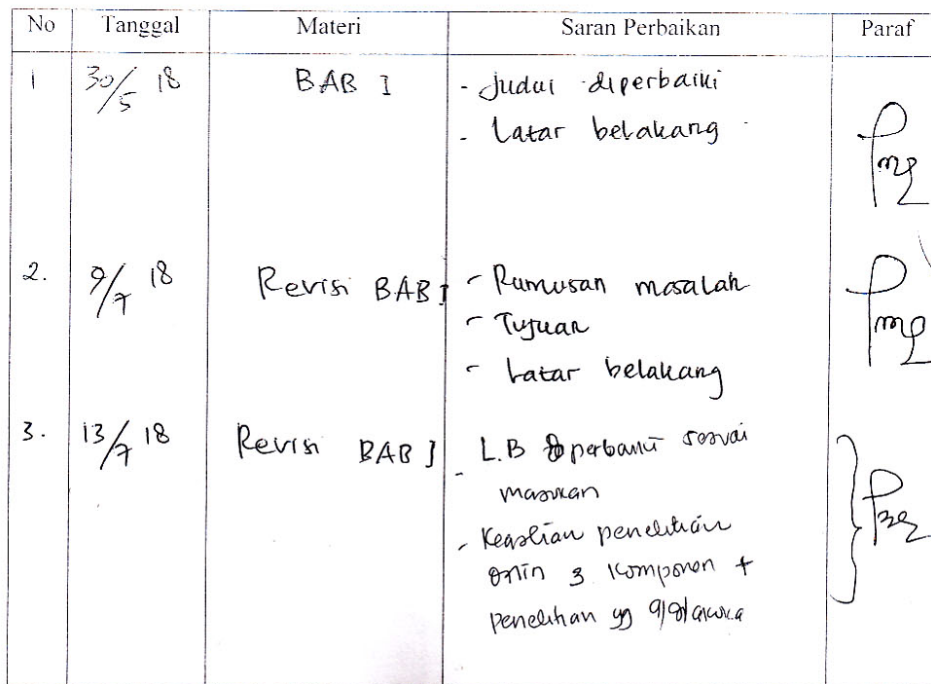 No Tanggal Materi Saran Perbaikan Paraf
1 30/5 18 BAB I - Judul diperbaiki
- Latar belakang
2. 9/7 18 Revisi BAB I - Rumusan masalah
- Tujuan
- Latar belakang
3. 13/7 18 Revisi BAB I - L.B perbaiki sesuai
masukan
- Keaslian penelitian
3 komponen +
penelitian yg